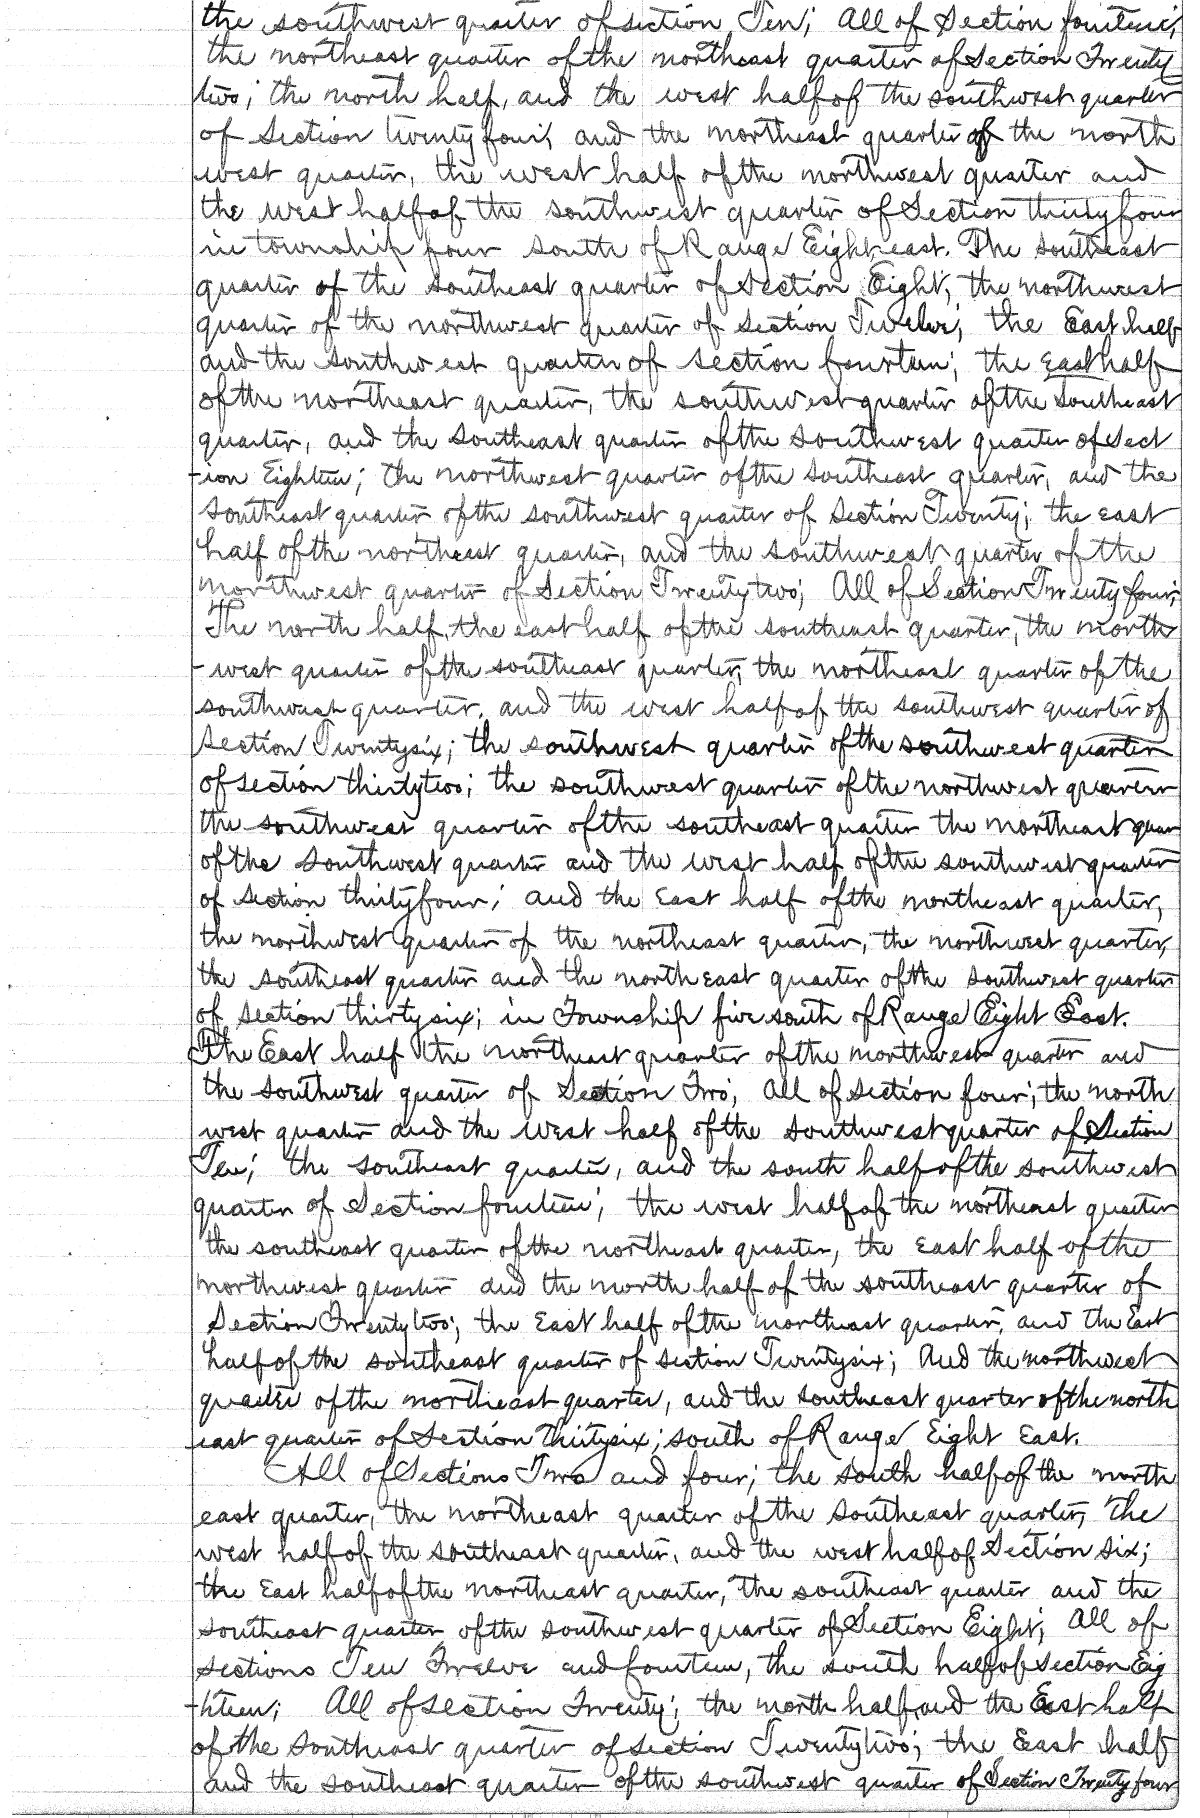 the southwest quarter of section Ten; All of Section fourteen;
the northeast quarter of the northeast quarter of Section Twenty
two; the north half, and the west half of the southwest quarter
of Section twenty four; and the northeast quarter of the north
west quarter, the west half of the northwest quarter and
the west half of the southwest quarter of Section thirty four
in township four south of Range Eight east. The southeast
quarter of the southeast quarter of Section Eight; the northwest
quarter of the northwest quarter of Section Twelve; the East half
and the southwest quarter of section fourteen; the east half
of the northeast quarter, the southwest quarter of the southeast
quarter, and the southeast quarter of the southwest quarter of Sect
-ion Eighteen; the northwest quarter of the southeast quarter, and the
southeast quarter of the southwest quarter of Section Twenty; the east
half of the northeast quarter, and the southwest quarter of the
northwest quarter of Section Twenty two; All of Section Twenty four;
The north half, the east half of the southeast quarter, the north
-west quarter of the southeast quarter, the northeast quarter of the
southwest quarter, and the west half of the southwest quarter of
Section Twenty six; the southwest quarter of the southwest quarter
of section thirty two; the southwest quarter of the northwest quarter
the southwest quarter of the southeast quarter the northeast quar
of the southwest quarter and the west half of the southwest quarter
of section thirty four; and the East half of the northeast quarter,
the northwest quarter of the northeast quarter, the northwest quarter,
the southeast quarter and the north east quarter of the southwest quarter
of section thirty six; in Township five south of Range Eight East.
The East half the northeast quarter of the northwest quarter and
the southwest quarter of Section Two; All of section four; the north
west quarter and the west half of the southwest quarter of Section
Ten; the southeast quarter, and the south half of the southwest
quarter of Section fourteen; the west half of the northeast quarter
the southeast quarter of the northeast quarter, the East half of the
northwest quarter and the north half of the southeast quarter of
Section Twenty two; the East half of the northeast quarter, and the East
half of the southeast quarter of section Twenty six; And the northwest
quarter of the northeast quarter, and the southeast quarter of the north
east quarter of Section Thirty six; south of Range Eight East.
All of Sections Two and four; the south half of the north
east quarter, the northeast quarter of the southeast quarter, the
west half of the southeast quarter, and the west half of Section six;
the East half of the northeast quarter, the southeast quarter and the
southeast quarter of the southwest quarter of Section Eight; All of
sections Ten Twelve and fourteen, the south half of section Eig
-hteen; All of section Twenty; the north half and the East half
of the southeast quarter of section Twenty two; the East half
and the southeast quarter of the southwest quarter of Section Twenty four